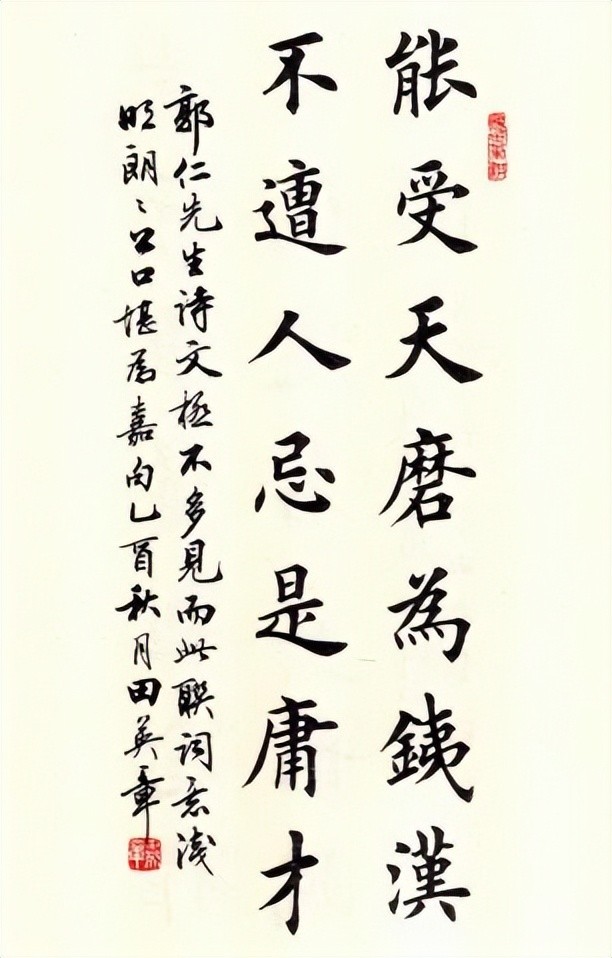 能受天磨為銕漢
不遭人忌是庸才
郭仁先生诗文極不多見而此联词意淺
明朗〻上口堪為嘉句乙酉秋月田英章